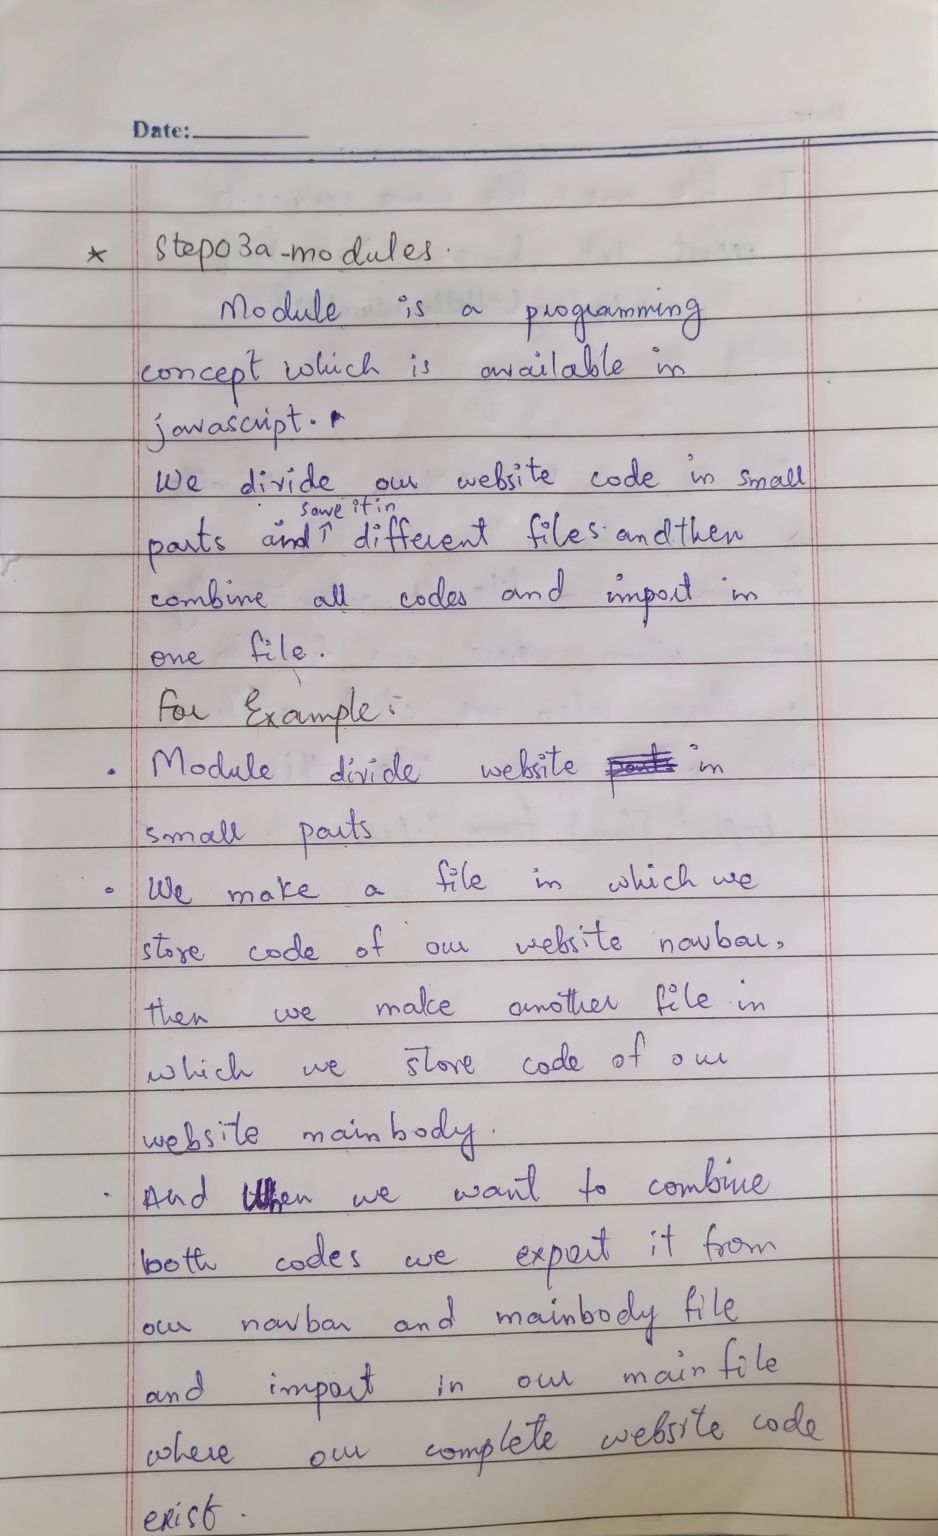 Date:
* Step03a-modules.
Module is a programming
concept which is available in
javascript.
We divide our website code in small
save it in
parts and ↑ different files and then
combine all codes and import in
one file.
For Example:
• Module divide website in
small parts
• We make a file in which we
store code of our website navbar,
then we make another file in
which we store code of our
website mainbody.
• And when we want to combine
both codes we export it from
our navbar and mainbody file
and import in our main file
where our complete website code
exist.